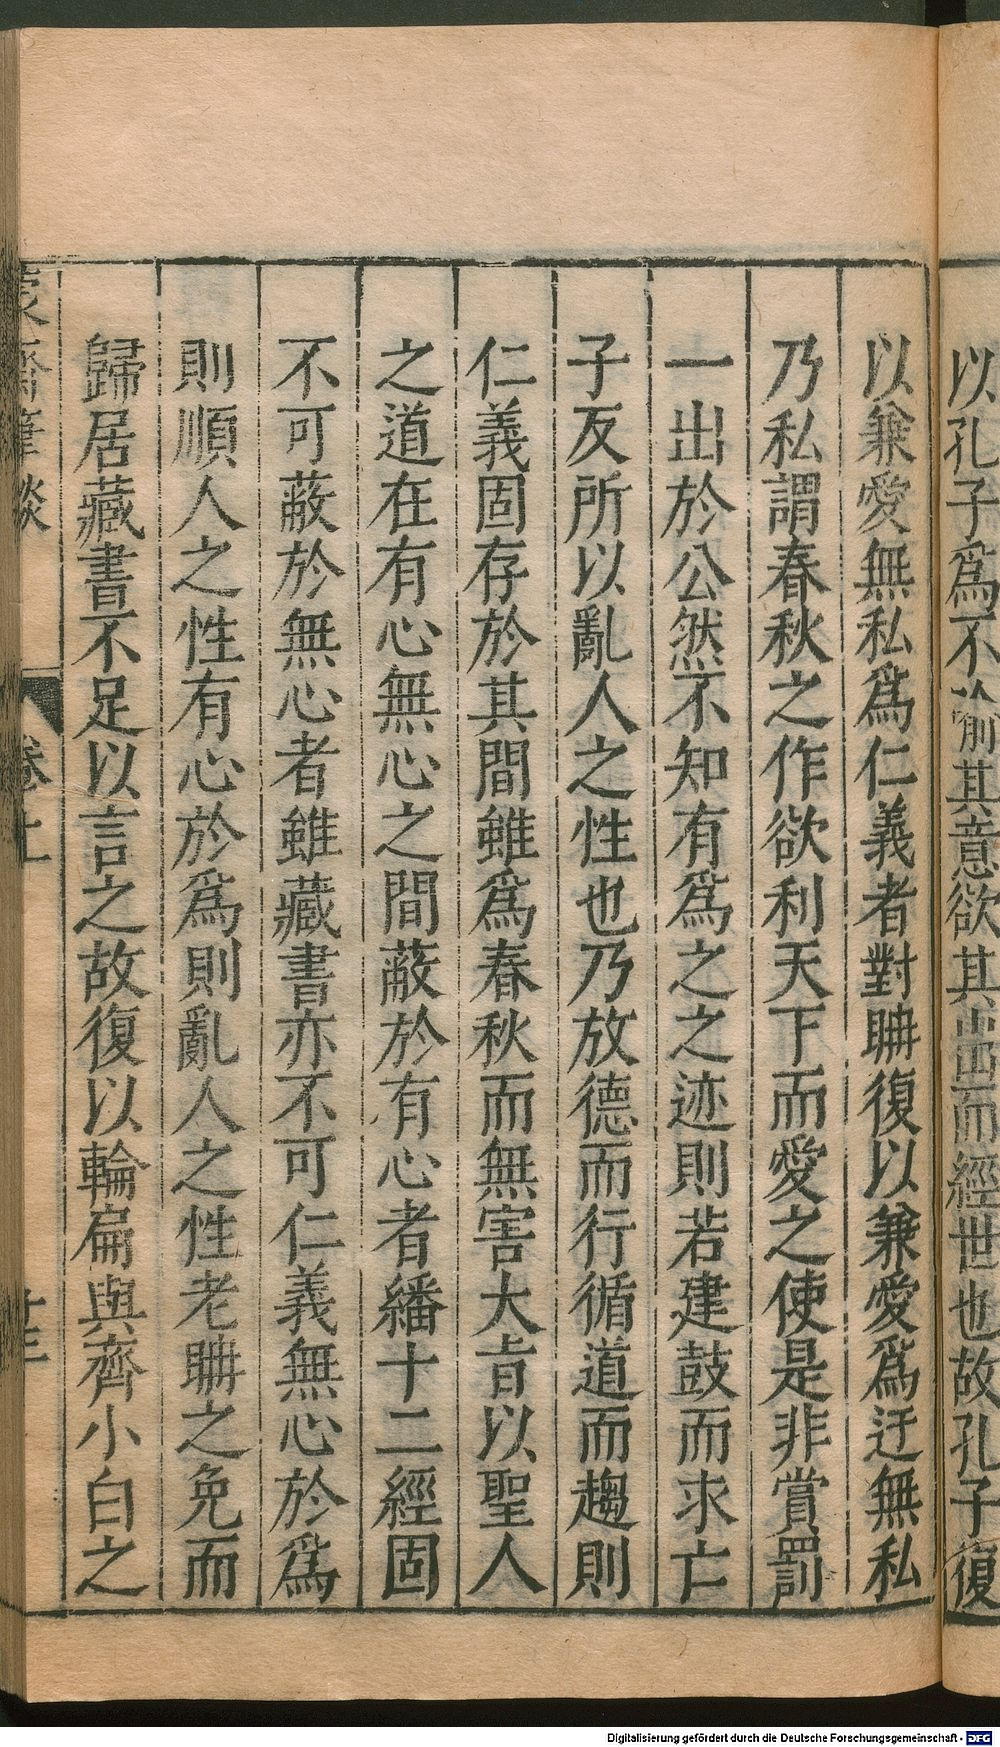 以孔子爲不喻其意欲其出而經世也故孔子復
以兼愛無私爲仁義者對聃復以兼愛爲迂無私
乃私謂春秋之作欲利天下而愛之使是非賞罰
一出於公然不知有爲之之迹則若建鼓而求亡
子反所以亂人之性也乃放德而行循道而趨則
仁義固存於其間雖爲春秋而無害大旨以聖人
之道在有心無心之間蔽於有心者繙十二經固
不可蔽於無心者雖藏書亦不可仁義無心於爲
則順人之性有心於爲則亂人之性老聃之免而
歸居藏書不足以言之故復以輪扁與齊小白之
蒙齋筆談
卷上
廿三
Digitalisierung gefördert durch die Deutsche Forschungsgemeinschaft - DFG